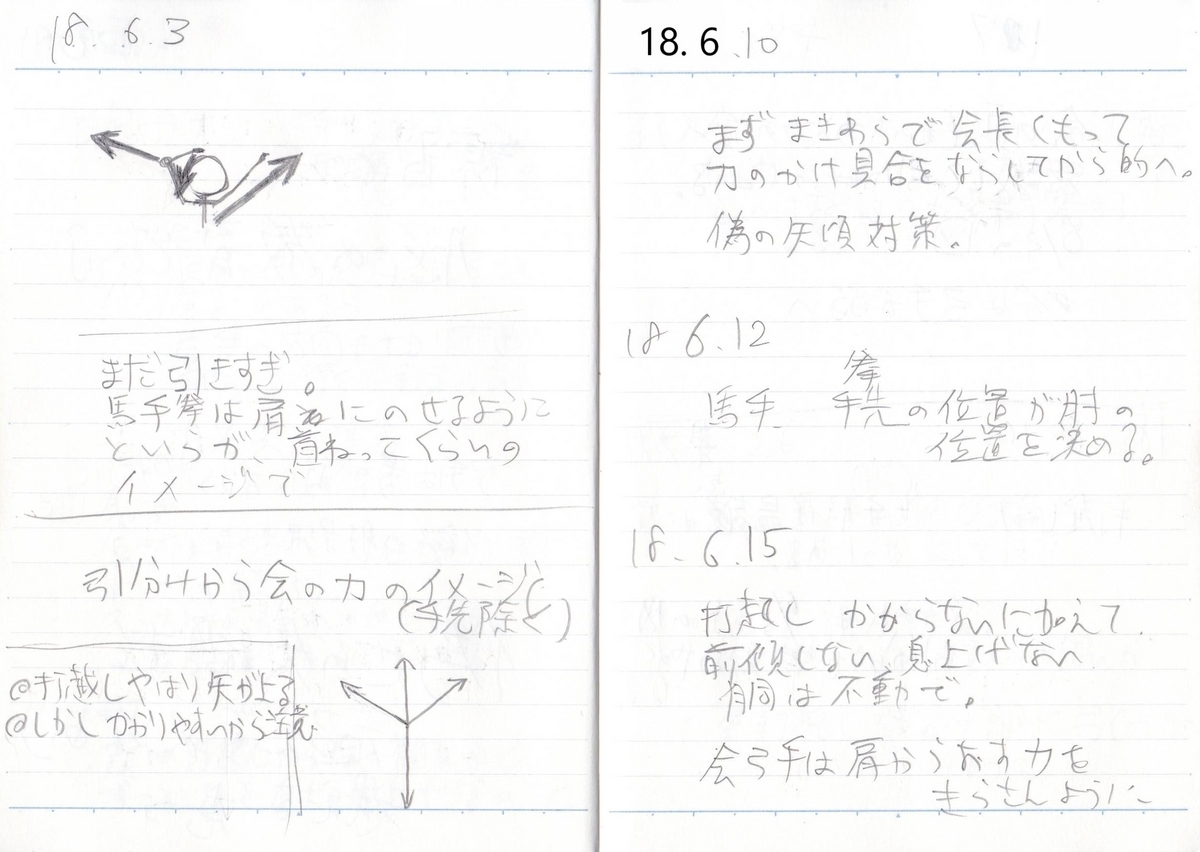 18. 6.3
まだ引きすぎ。
馬手拳は肩に のせるように
というが、首ねってくらいの
イメージで
引分けから会の力のイメージ
(手先除く)
@打越しやはり矢が上る
@しかしかかりやすいから注意
18. 6.10
まず まきわらで会長くもって
力のかけ具合をならしてから的へ。
偽の矢頃対策。
18 6.12
拳
馬手 手先の位置が肘の
位置を決める。
18. 6.15
打起し かからないに加えて
前傾しない、息上げない
胴は不動で。
会弓手は肩からおす力を
きらさんように